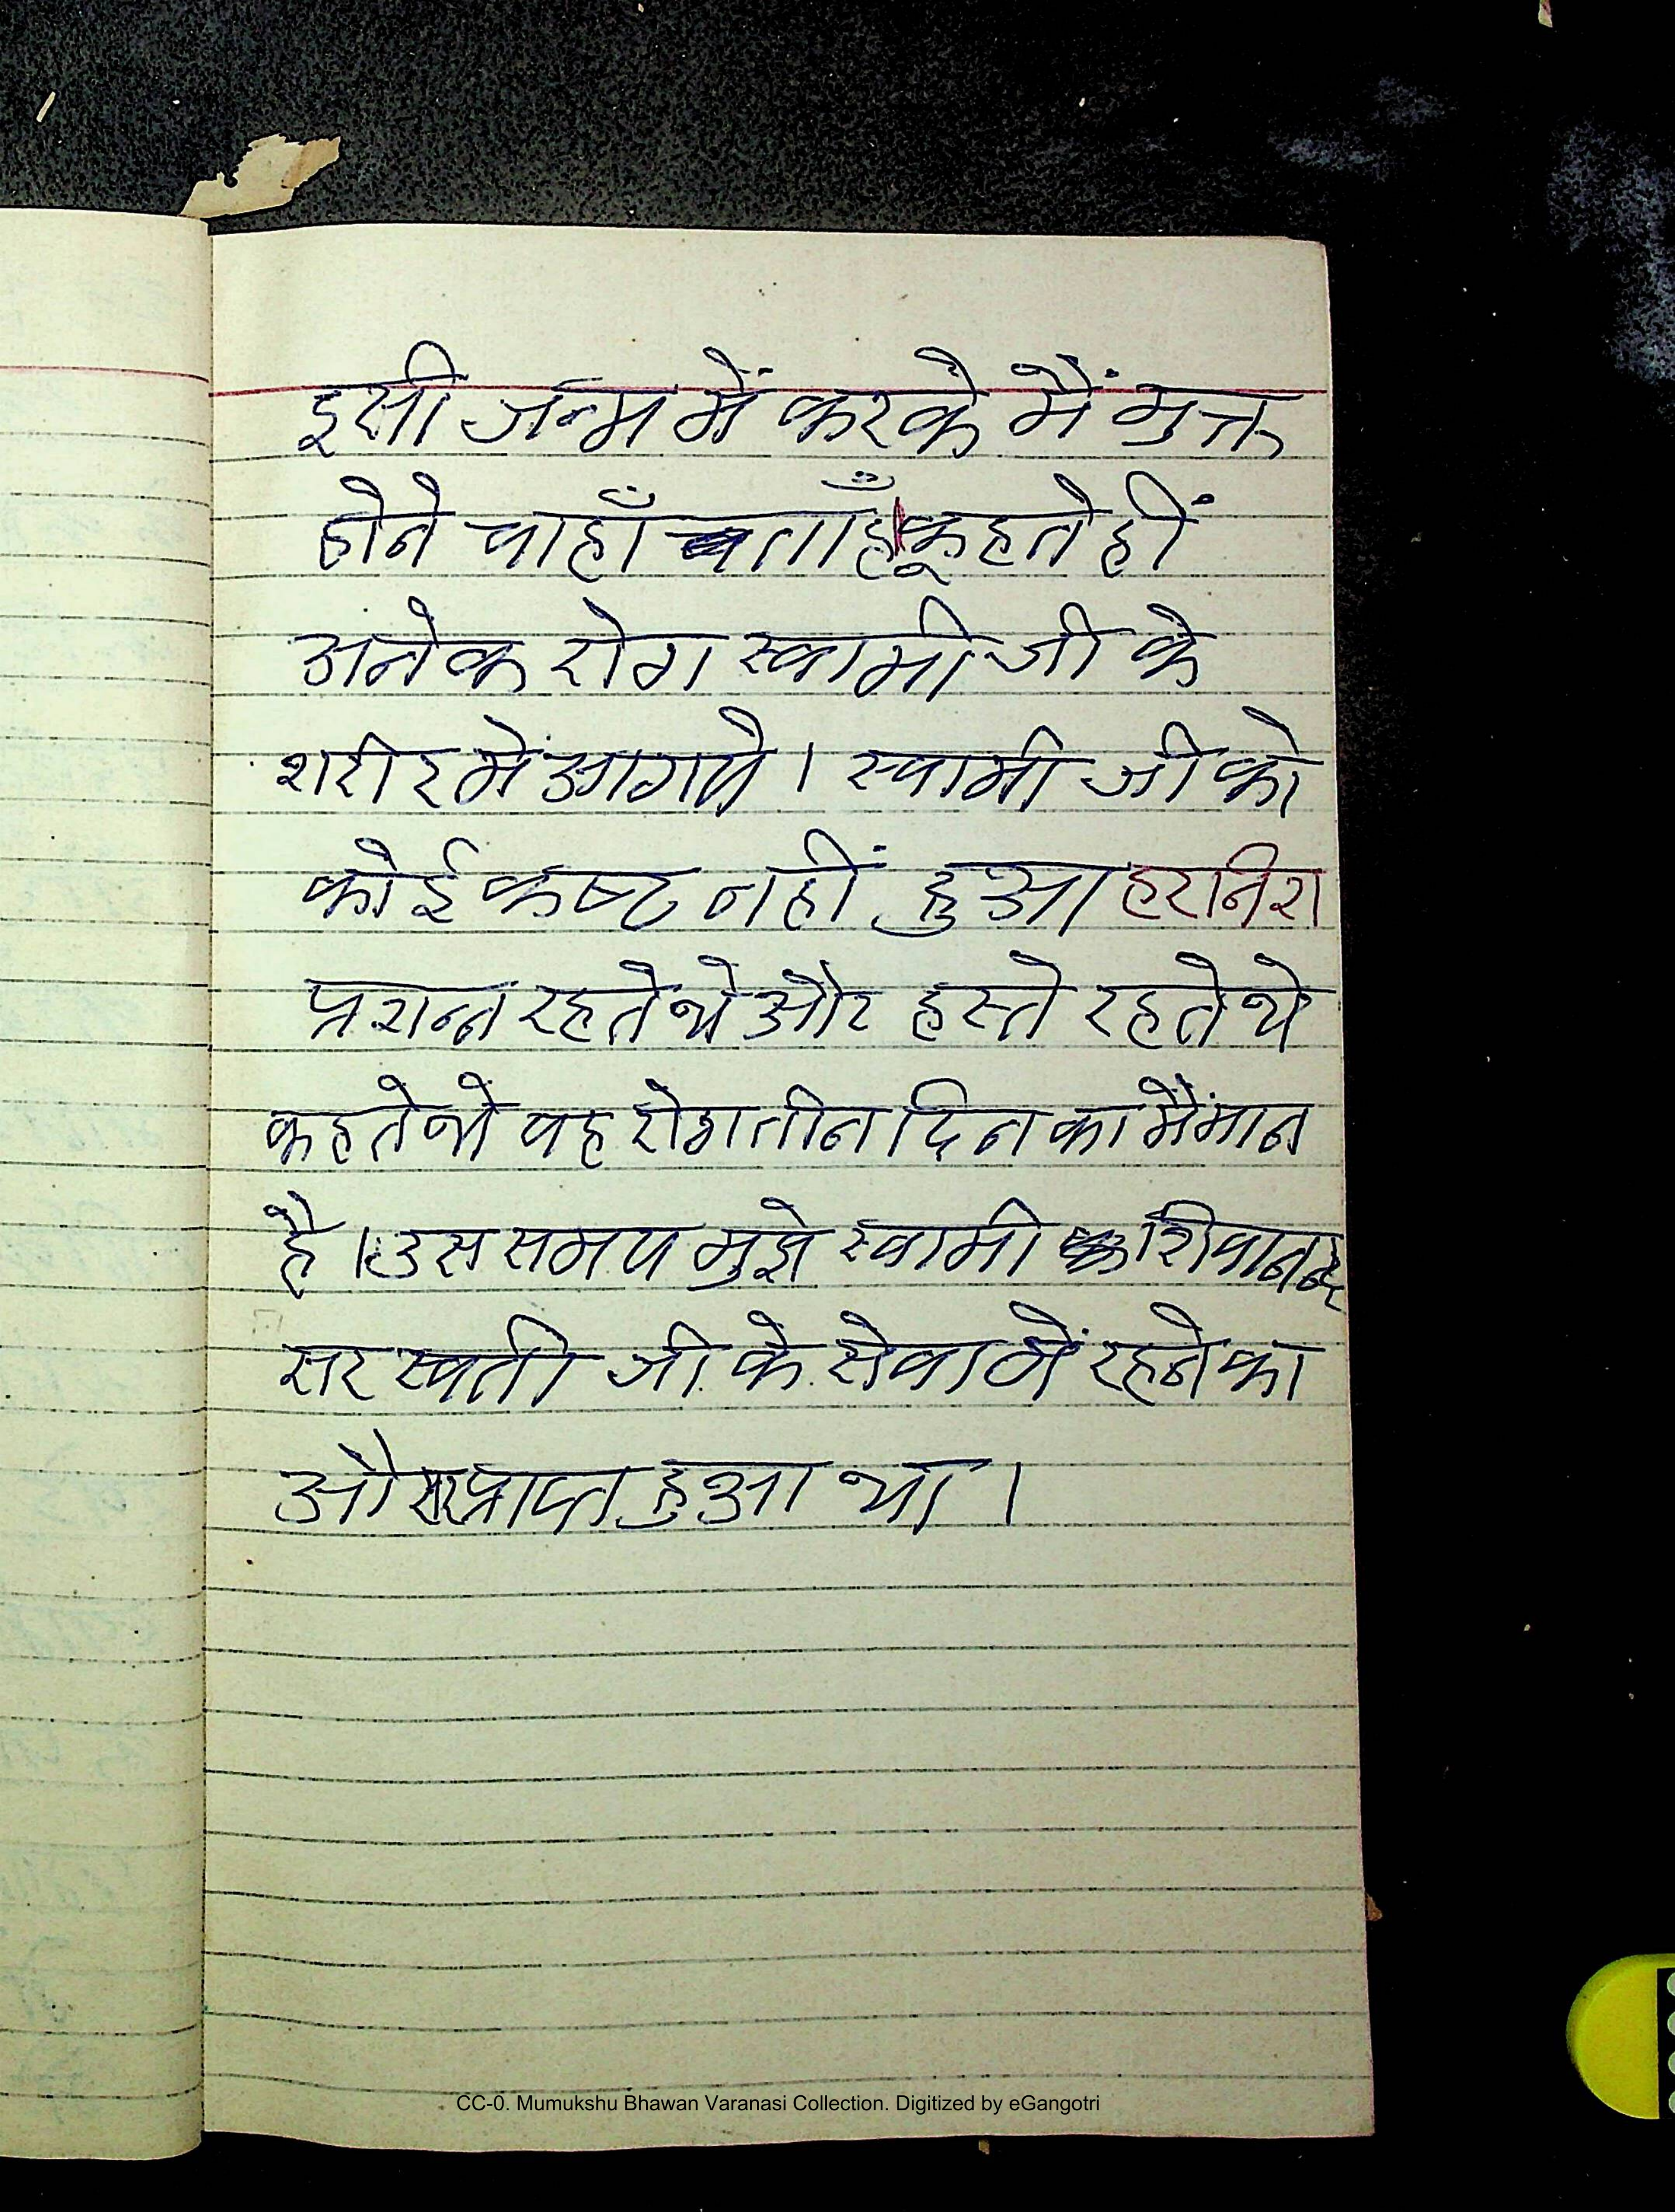 इसी जन्म में करके मैं मुक्त
होने चाहाँ ताहूँ। कहते हीं
अनेक रोग स्वामी जी के
शरीर में आगये । स्वामी जी को
कोई कष्ट नहीं हुआ हरानिश
प्रशन्न रहते थे और हस्ते रहते थे
कहते थे वह रोग तीन दिन का मैंमान
है । उस समय मुझे स्वामी शिवानन्द
सरस्वती जी के सेवा में रहने का
प्राप्त हुआ था ।
CC-0. Mumukshu Bhawan Varanasi Collection. Digitized by eGangotri